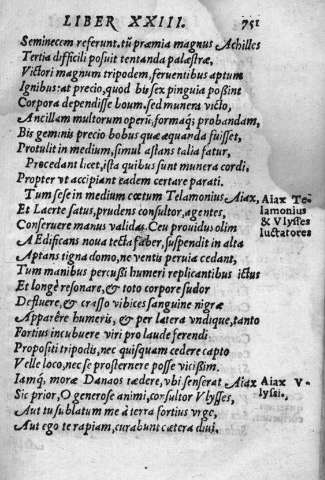 LIBER XXIII. 751
Seminecem referunt. tū præmia magnus Achilles
Tertia difficili posuit tentanda palæstræ,
Victori magnum tripodem, feruentibus aptum
Ignibus: at precio, quod bis sex pinguia possint
Corpora dependisse boum, sed munera victo,
Ancillam multorum operū, formaq; probandam,
Bis geminis precio bobus quæ æquanda fuisset,
Protulit in medium, simul astans talia fatur,
Procedant licet, ista quibus sunt munera cordi,
Propter vt accipiant eadem certare parati.
Tum sese in medium cœtum Telamonius Aiax,
Aiax Te-
lamonius
& Vlysses
luctatores
Et Laerte satus, prudens consultor, agentes,
Conseruere manus validas. Ceu prouidus olim
AEdificans noua tecta faber, suspendit in alta
Aptans tigna domo, ne ventis peruia cedant,
Tum manibus percussi humeri replicantibus ictus
Et longè resonare, & toto corpore sudor
Defluere, & crasso vibices sanguine nigræ
Apparêre humeris, & per latera vndique, tanto
Fortius incubuere viri pro laude ferendi
Propositi tripodis, nec quisquam cedere capto
Velle loco, nec se prosternere posse vicißim.
Iamq; moræ Danaos tædere, vbi senserat Aiax
Aiax V-
lyssi.
Sic prior, O generose animi, consultor Vlysses,
Aut tu sublatum me à terra fortius vrge,
Aut ego te rapiam, curabunt cætera diui,